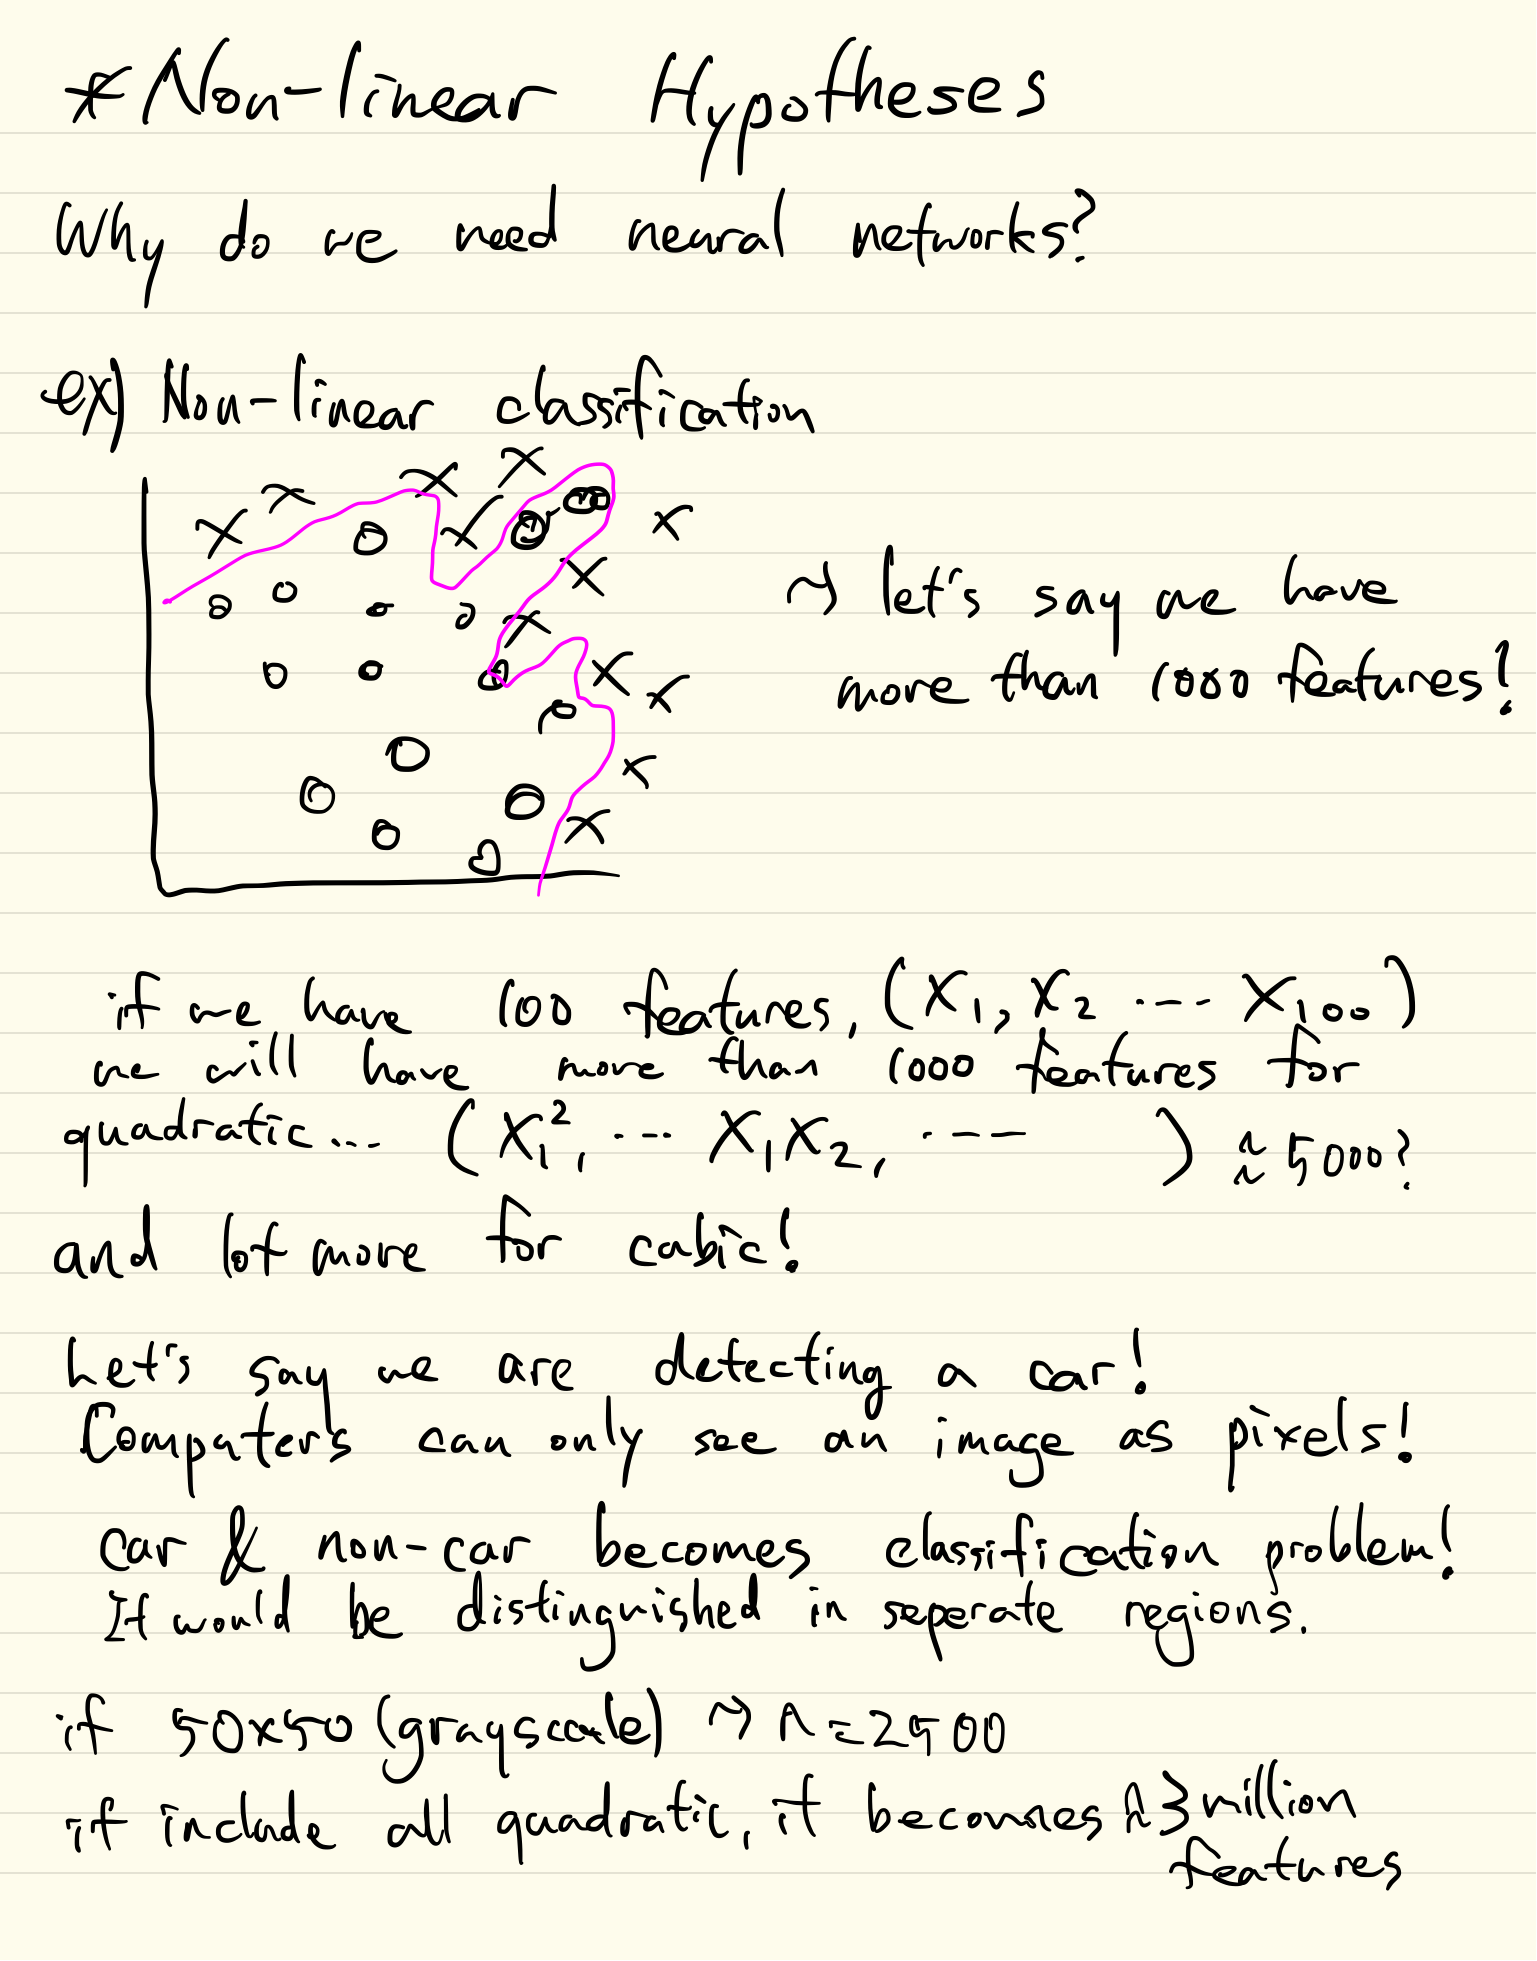 * Non-linear Hypotheses
Why do we need neural networks?
ex) Non-linear classification
~> let's say we have
more than 1000 features!
if we have 100 features, (X₁, X₂ ---- X₁₀₀)
we will have more than 1000 features for
quadratic... (X₁², --- X₁X₂, ---- ) ≈ 5000?
and lot more for cubic!
Let's say we are detecting a car!
Computers can only see an image as pixels!
car & non-car becomes classification problem!
It would be distinguished in seperate regions.
if 50x50 (grayscale) ~> n = 2500
if include all quadratic, it becomes ≈ 3 million
features